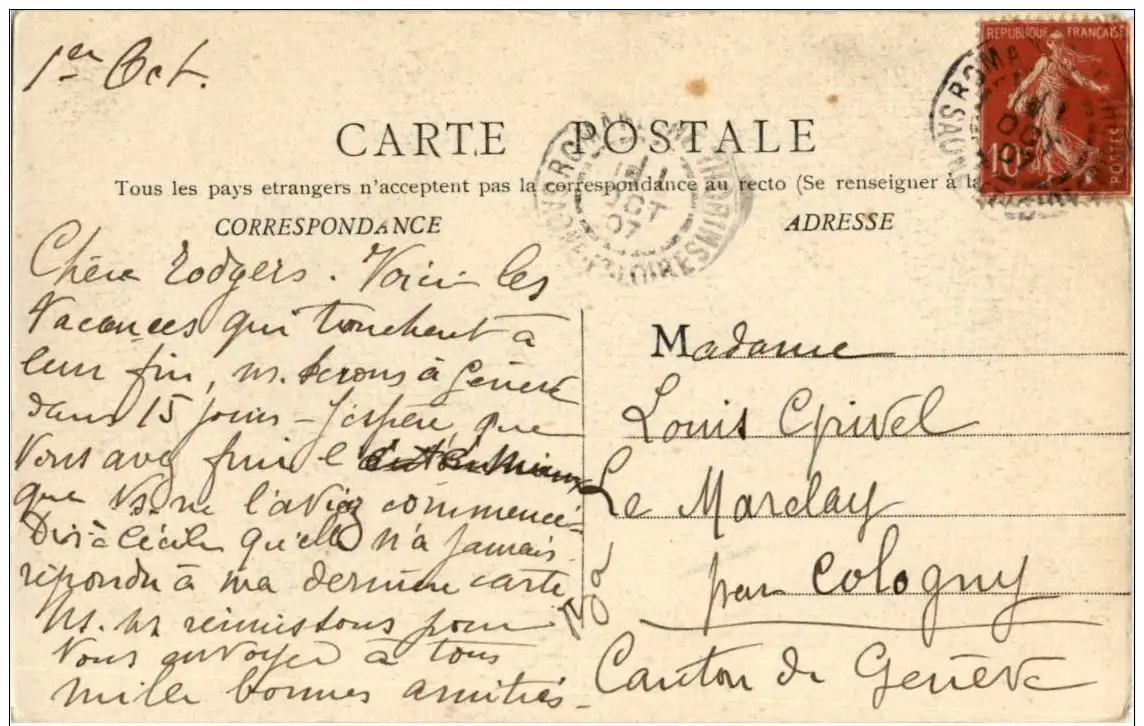 1er Oct.
REPUBLIQUE FRANÇAISE
10
POSTES
CARTE POSTALE
Tous les pays etrangers n'acceptent pas la correspondance au recto (Se renseigner à la
CORRESPONDANCE
ADRESSE
ROMANECHE-THORINS
SAONE-ET-LOIRE
1
OCT
07
Chère Rodgers. Voici les
vacances qui touchent à
leur fin, ns. serons à Genève
dans 15 jours – J'espère que
vous avez fini
que vs. ne l'aviez commencé –
Dis à Cécile qu'elle n'a jamais
répondu à ma dernière carte
Ns. ns réunissons pour
vous envoyer à tous
mille bonnes amitiés –
Madame
Louis
Le
par Cologny
Canton de Genève